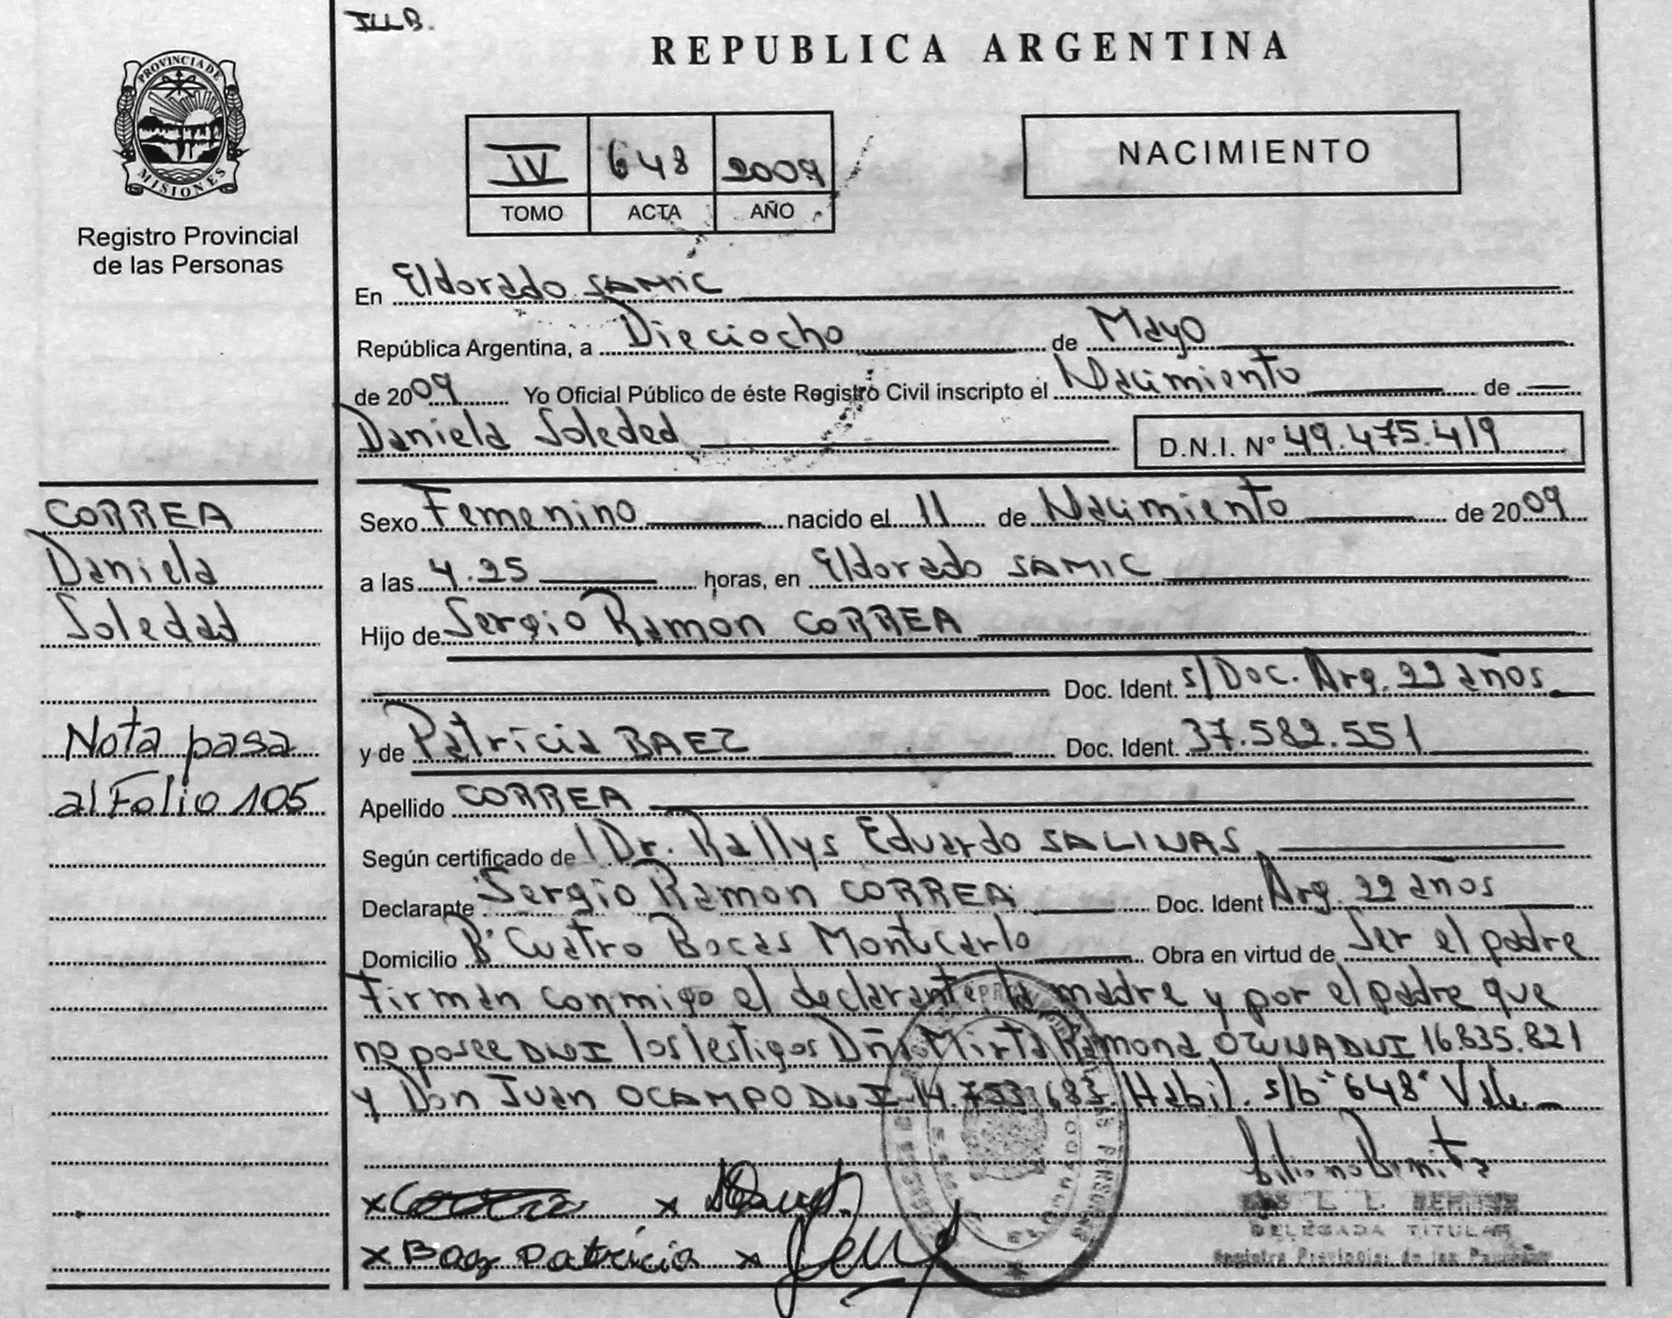 ILLB.
REPUBLICA ARGENTINA
PROVINCIA DE
MISIONES
Registro Provincial
de las Personas
IV 648 2009
TOMO ACTA AÑO
NACIMIENTO
En Eldorado SAMIC
República Argentina, a Dieciocho de Mayo
de 2009 Yo Oficial Público de éste Registro Civil inscripto el Nacimiento de
Daniela Soledad D.N.I. Nº 49.475.419
CORREA
Daniela
Soledad
Nota pasa
al Folio 105
Sexo Femenino nacido el 11 de Nacimiento de 2009
a las 4.25 horas, en Eldorado SAMIC
Hijo de Sergio Ramon CORREA
Doc. Ident. s/Doc. Arg. 22 años
y de Patricia BAEZ Doc. Ident. 37.582.551
Apellido CORREA
Según certificado del Dr. Rallys Eduardo SALINAS
Declarante Sergio Ramon CORREA Doc. Ident Arg. 22 años
Domicilio Bº Cuatro Bocas Montecarlo Obra en virtud de Ser el padre
Firman conmigo el declarante la madre y por el padre que
no posee DNI los testigos Dña Mirta Ramona OZUNA DNI 16.835.821
y Don Juan OCAMPO DNI 14.753.683. Habil. s/b "648" Vale
x x
x Baez Patricia x
DELEGADA TITULAR
Registro Provincial de las Personas